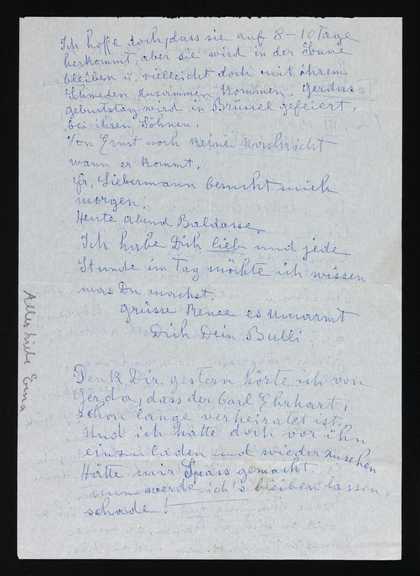 Ich hoffe doch, dass sie auf 8-10 Tage
herkommt, aber sie wird in der
bleiben u. vielleicht doch mit ihrem
zusammen kommen. Gerdas
geburtstag wird in Brüssel gefeiert,
bei ihren Söhnen.
Von Ernst noch keine Nachricht
wann er kommt.
Fr. Liebermann besucht mich
morgen.
Heute abend Baldasse.
Ich habe Dich lieb und jede
Stunde im Tag möchte ich wissen
was Du machst.
grüsse Renee es umarmt
Dich Dein Bulli
Denk Dir, gestern hörte ich von
Gerda, dass der Carl Ehrhart,
schon lange verheiratet ist.
Und ich hatte doch vor ihn
einzuladen und wiederzusehen
Hätte mir Spass gemacht
nun werde ich's bleiben lassen,
schade!
Alles liebe